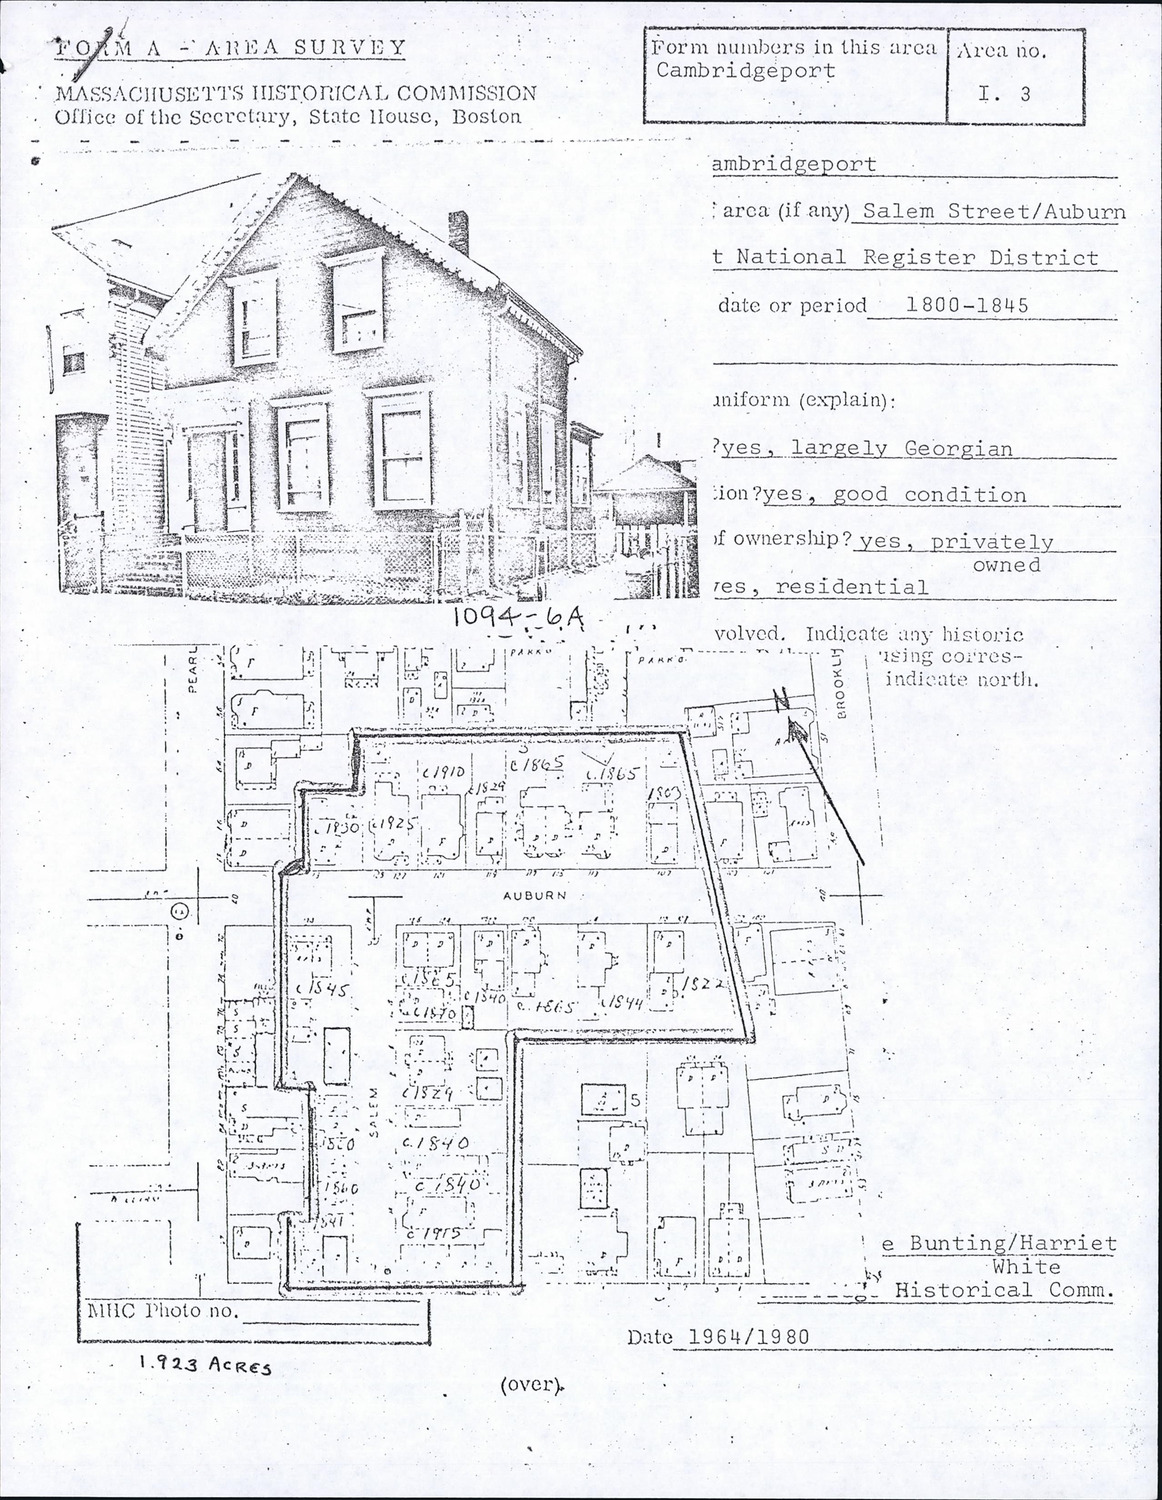 FORM A - AREA SURVEY
MASSACHUSETTS HISTORICAL COMMISSION
Office of the Secretary, State House, Boston
Form numbers in this area
Cambridgeport
Area no.
I. 3
ambridgeport
area (if any) Salem Street/Auburn
t National Register District
date or period 1800-1845
uniform (explain):
?yes, largely Georgian
ion?yes, good condition
of ownership? yes, privately
owned
yes, residential
1094-6A
volved. Indicate any historic
using corres-
indicate north.
PEARL
BROOKLI
N
c1910
c1865
c.1865
1829
1803
c1830
c1925
AUBURN
c1845
c1865
c1870
c1840
c.1865
c1844
1822
c1829
SALEM
5
1820
c.1840
1860
c1840
1841
c1915
e Bunting/Harriet
White
Historical Comm.
MHC Photo no.
Date 1964/1980
1.923 ACRES
(over).